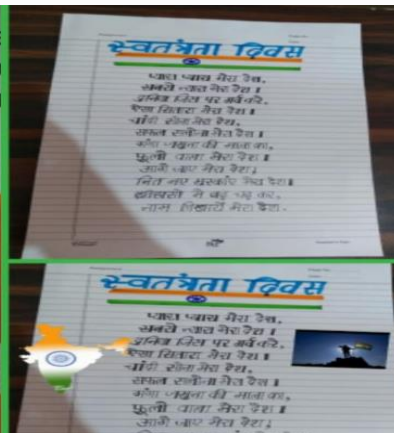 स्वतंत्रता दिवस
प्यारा प्यारा मेरा देश,
सबसे न्यारा मेरा देश।
दुनिया जिस पर गर्व करे,
ऐसा सितारा मेरा देश।
चांदी सोना मेरा देश,
सफल सलोना मेरा देश।
गंगा जमुना की माला का,
फूलों वाला मेरा देश।
आगे जाए मेरा देश,
नित नए मुस्काएं मेरा देश।
इतिहासों में बढ़ चढ़ कर,
नाम लिखायें मेरा देश.
स्वतंत्रता दिवस
प्यारा प्यारा मेरा देश,
सबसे न्यारा मेरा देश।
दुनिया जिस पर गर्व करे,
ऐसा सितारा मेरा देश।
चांदी सोना मेरा देश,
सफल सलोना मेरा देश।
गंगा जमुना की माला का,
फूलों वाला मेरा देश।
आगे जाए मेरा देश,